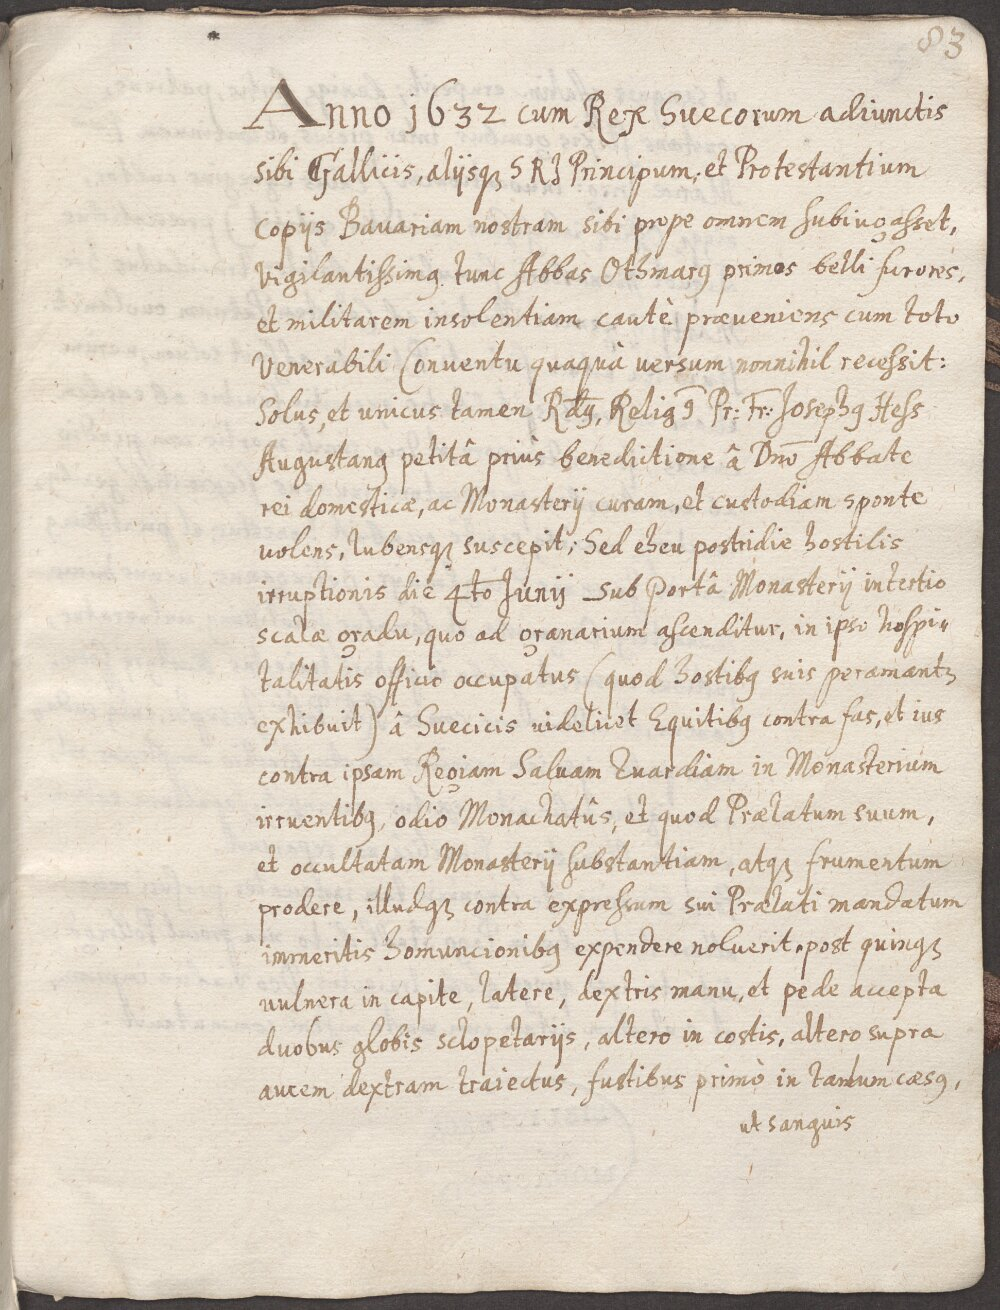 83
Anno 1632 cum Rex Suecorum adiunctis
sibi Gallicis, alijsqꝫ S R I Principum, et Protestantium
copijs Bauariam nostram sibi prope omnem subiugasset,
Vigilantissimꝰ tunc Abbas Othmarꝰ primos belli furores,
et militarem insolentiam cautè præueniens cum toto
Venerabili Conventu quaquà versum nonnihil recessit:
Solus, et unicus tamen Rdꝰ, Religꝰ Pr: Fr: Josephꝰ Hess
Augustanꝰ petitâ priùs benedictione â Dno Abbate
rei domesticæ, ac Monasterij curam, et custodiam sponte
uolens, lubensqꝫ suscepit; Sed eheu postridie hostilis
irruptionis die 4to Junij sub Portâ Monasterij in tertio
scalæ gradu, quo ad granarium ascenditur, in ipso hospi„
talitatis officio occupatus (quod hostibꝰ suis peramantꝫ
exhibuit) â Suecicis videlicet Equitibꝰ contra fas, et ius
contra ipsam Regiam Saluam Guardiam in Monasterium
irruentibꝰ, odio Monachatûs, et quod Prælatum suum,
et occultatam Monasterij substantiam, atqꝫ frumentum
prodere, illudqꝫ contra expressum sui Prælati mandatum
immeritis homuncionibꝰ expendere noluerit, post quinqꝫ
vulnera in capite, latere, dextris manu, et pede accepta
duobus globis sclopetarijs, altero in costis, altero supra
aurem dextram traiectus, fustibus primò in tantum cæsꝰ,
ut sanguis